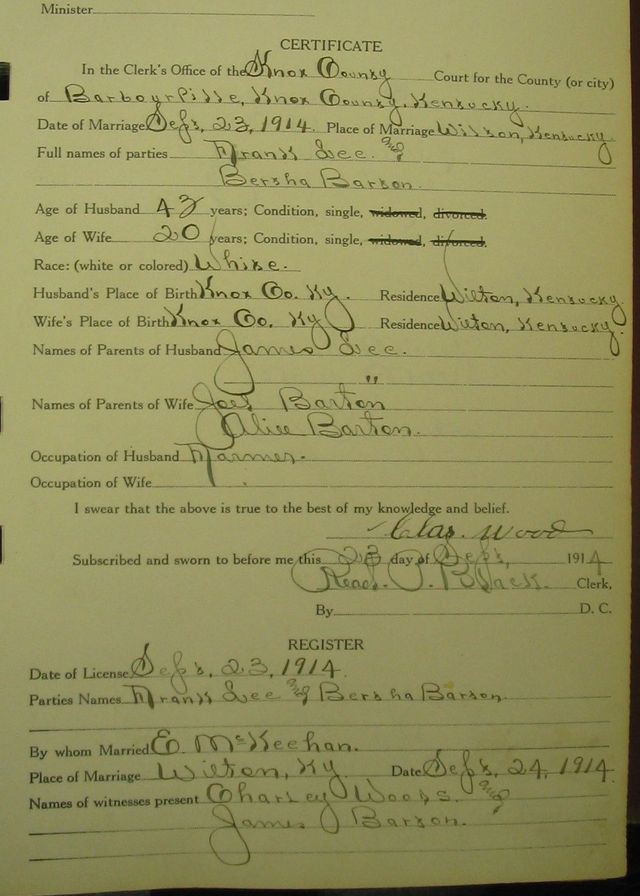 Minister
CERTIFICATE
In the Clerk's Office of the Knox County Court for the County (or city)
of Barbourville, Knox County, Kentucky.
Date of Marriage Sept, 23, 1914. Place of Marriage Wilton, Kentucky
Full names of parties Frank Lee. and
Bertha Barton.
Age of Husband 43 years; Condition, single, widowed, divorced.
Age of Wife 20 years; Condition, single, widowed, divorced.
Race: (white or colored) White.
Husband's Place of Birth Knox Co. Ky. Residence Wilton, Kentucky.
Wife's Place of Birth Knox Co. Ky Residence Wilton, Kentucky.
Names of Parents of Husband James Lee.
"
Names of Parents of Wife Joe Barton
Alice Barton.
Occupation of Husband Farmer.
Occupation of Wife
I swear that the above is true to the best of my knowledge and belief.
Chas. Wood
Subscribed and sworn to before me this 23 day of Sept, 1914
Read. P. Black. Clerk,
By D. C.
REGISTER
Date of License Sept, 23, 1914.
Parties Names Frank Lee and Bertha Barton.
By whom Married E. McKeehan.
Place of Marriage Wilton, Ky Date Sept, 24, 1914.
Names of witnesses present Charley Woods. and
James Barton.